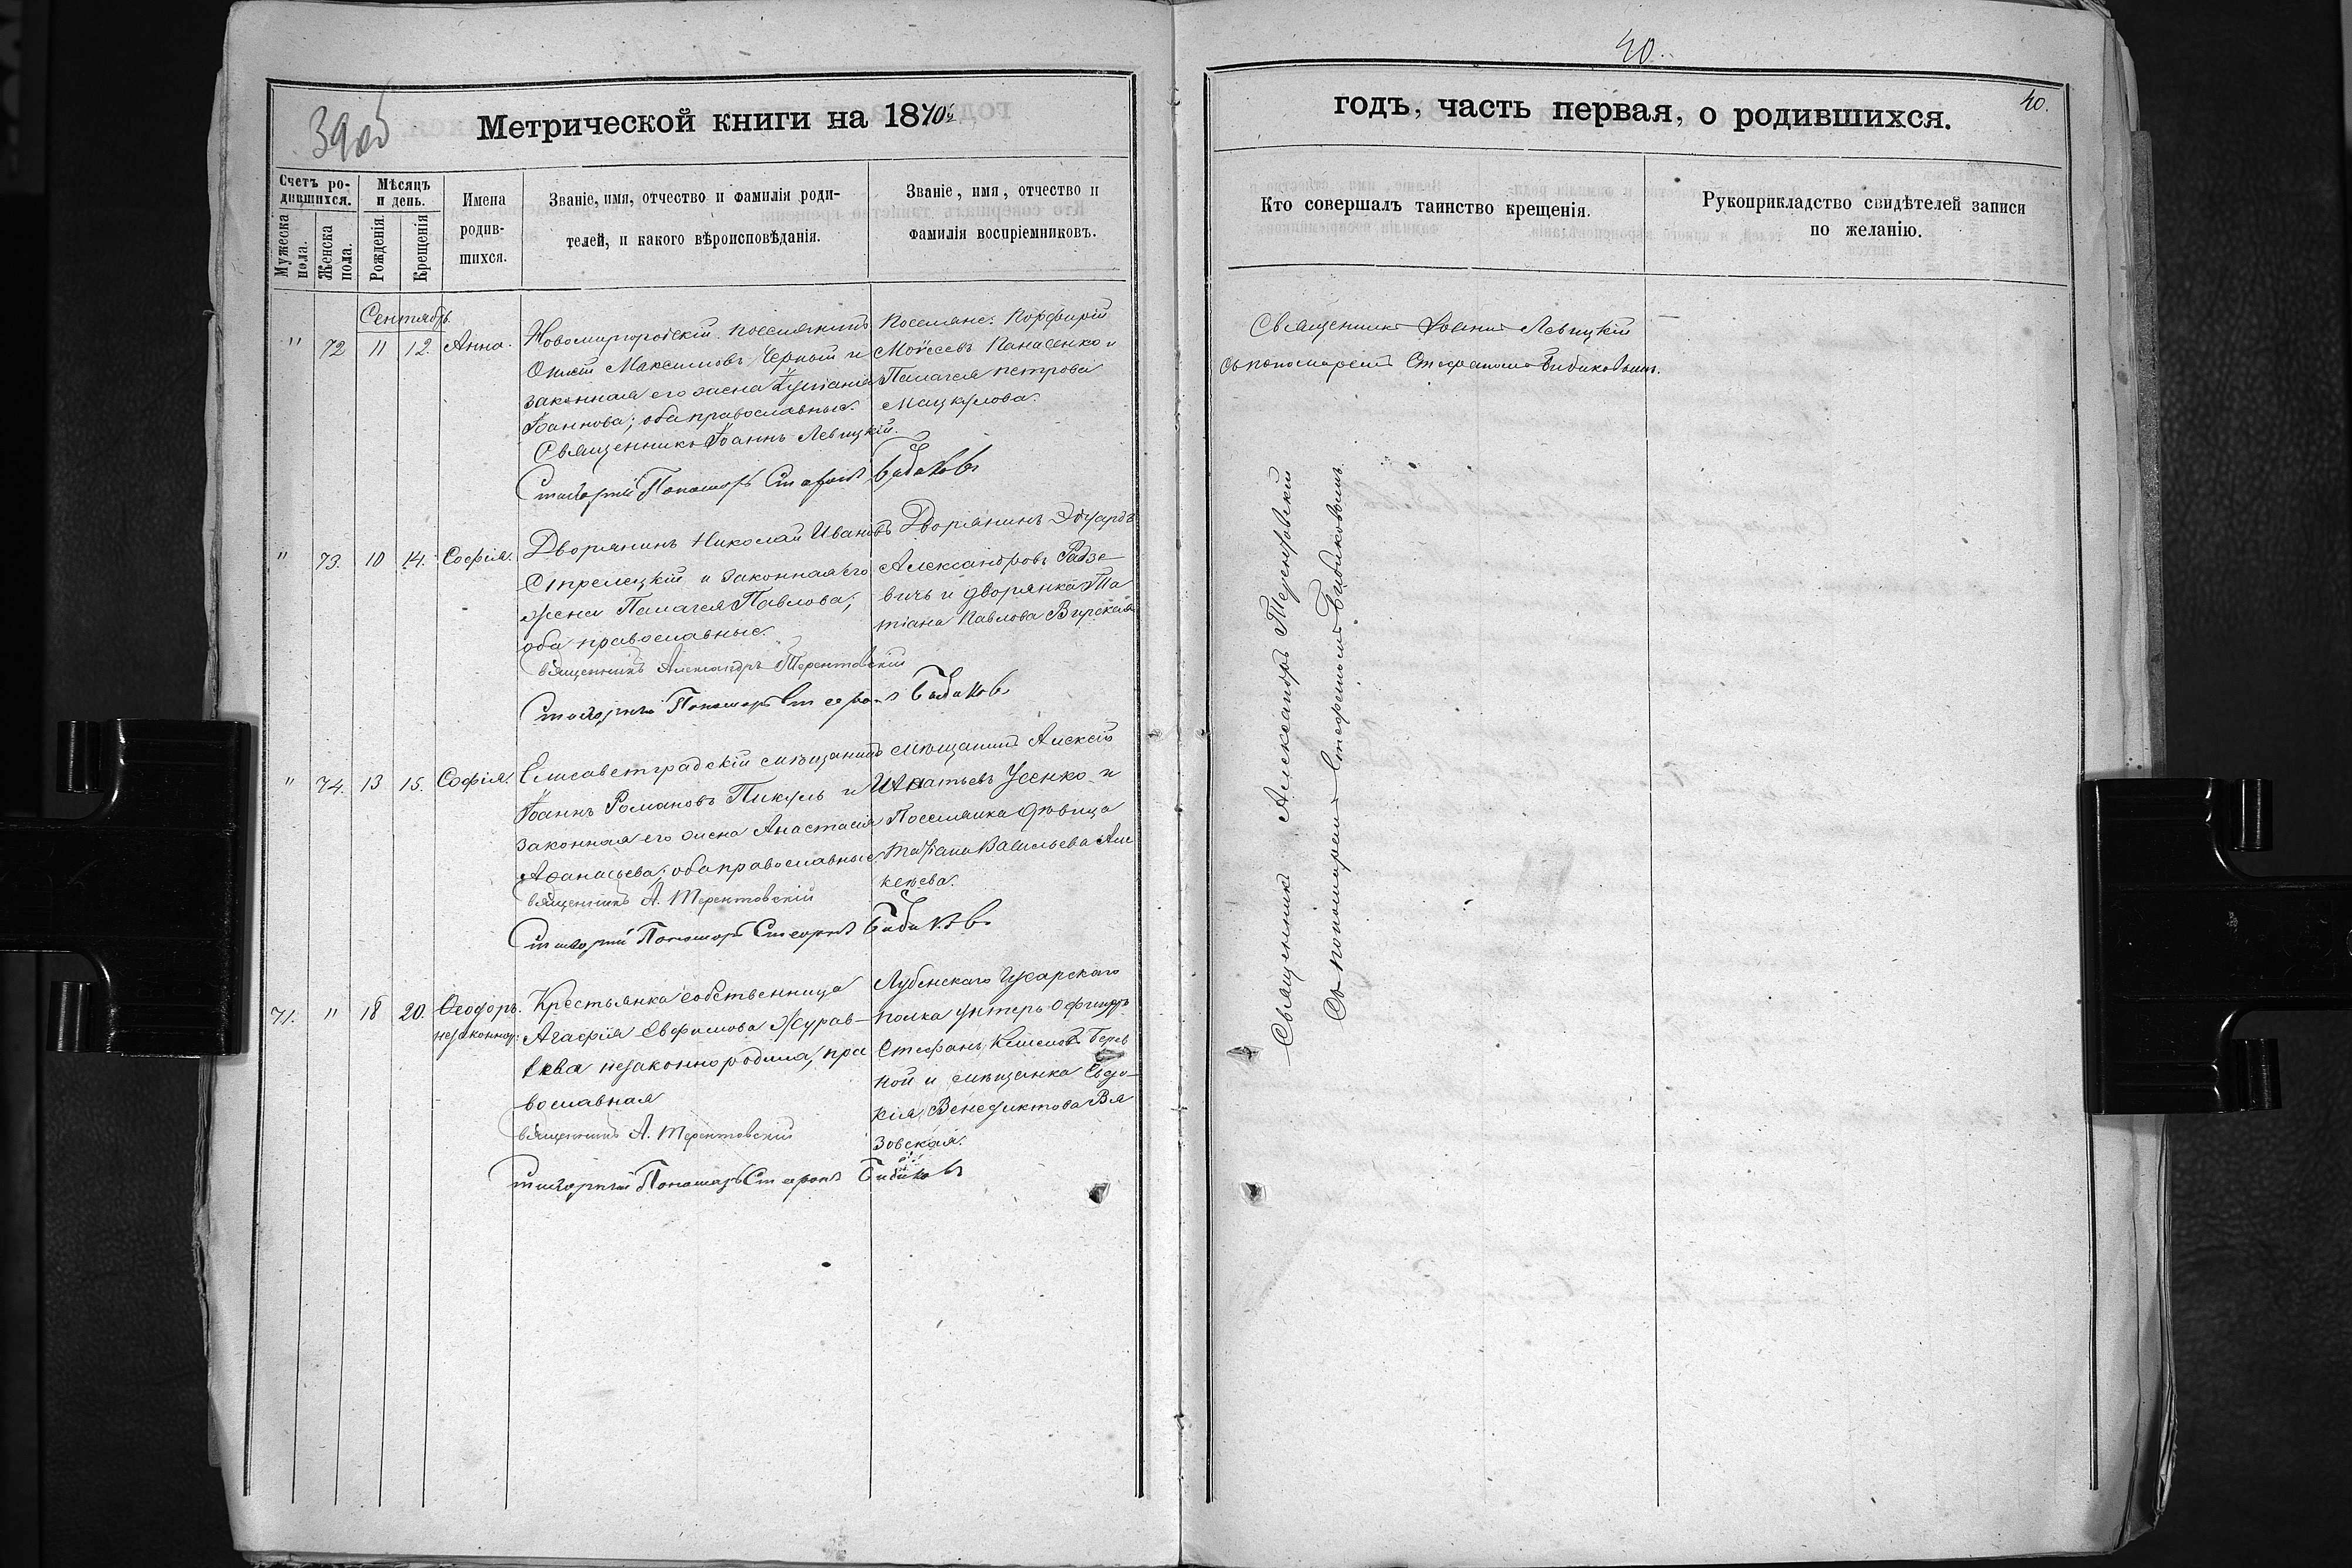 39об
Метрической книги на 1870й
Счетъ ро-
дившихся.
Мужеска пола.
Женска пола.
Мѣсяцъ
и день.
Рожденія.
Крещенія
Имена
родив-
шихся.
Званіе, имя, отчество и фамилія роди-
телей, и какого вѣроисповѣданія.
Званіе, имя, отчество и
фамилія воспріемниковъ.
Сентябрь
" 72 11 12. Анна.
Новомиргородскій поселянинъ
Максимовъ Черный и
законная его жена
Іоаннова; оба православные.
Священникъ Іоаннъ Левицкій.
Пономарь Стефанъ Бибиковъ
Поселяне: Порфирій
Моѵсеевъ Панасенко и
Палагея Петрова
Мацкулова.
" 73. 10 14. Софія.
Дворянинъ Николай Ивановъ
Стрелецкій и законная его
жена Палагея Павлова;
оба православные.
Священникъ Александръ Терентовскій
Пономарь Стефанъ Бибиковъ
Дворянинъ Эдуардъ
Александровъ Радзе-
вичъ и дворянка Та
тіана Павлова Вирская
" 74. 13 15. Софія.
Елисаветградскій мѣщанинъ
Іоаннъ Романовъ Пикуль и
законная его жена Анастасія
Аѳанасьева; оба православные
Священникъ А. Терентовскій
Пономарь Стефанъ Бибиковъ
мѣщанинъ Алексѣй
Игнатьевъ Усенко и
Поселянка дѣвица
Татіана Васильева Але
ксѣева.
71. " 18 20. Ѳеодоръ.
незаконнор:
Крестьянка собственница
Агафія Евфимова Журав-
лева незаконно родила, пра
вославная
Священникъ А. Терентовскій
Пономарь Стефанъ Бибиковъ
Лубенскаго Гусарскаго
полка унтеръ-офицеръ
Стефанъ
ной и мѣщанка Евдо-
кія Венедиктова Вя
зовская.
40.
годъ, часть первая, о родившихся.
40.
Кто совершалъ таинство крещенія.
Рукоприкладство свидѣтелей записи
по желанію.
Священникъ Іоаннъ Левицкій
съ пономаремъ Стефаномъ Бибиковымъ.
Священникъ Александръ Терентовскій
Съ пономаремъ Стефаномъ Бибиковымъ